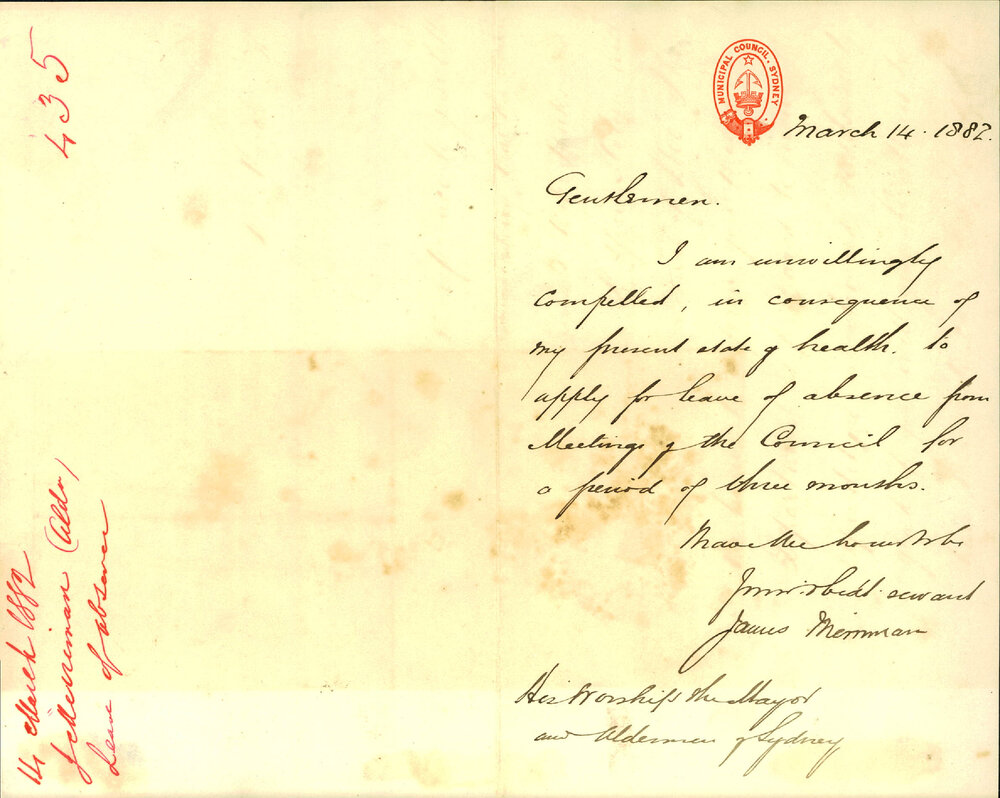 435
14 March 1882
J Merriman (Aldn)
Leave of absence
MUNICIPAL COUNCIL · SYDNEY
March 14 · 1882.
Gentlemen.
I am unwillingly
compelled, in consequence of
my present state of health. to
apply for leave of absence from
Meetings of the Council for
a period of three months.
I have the honor to be
Your obedt. servant
James Merriman
His Worship the Mayor
and Aldermen of Sydney